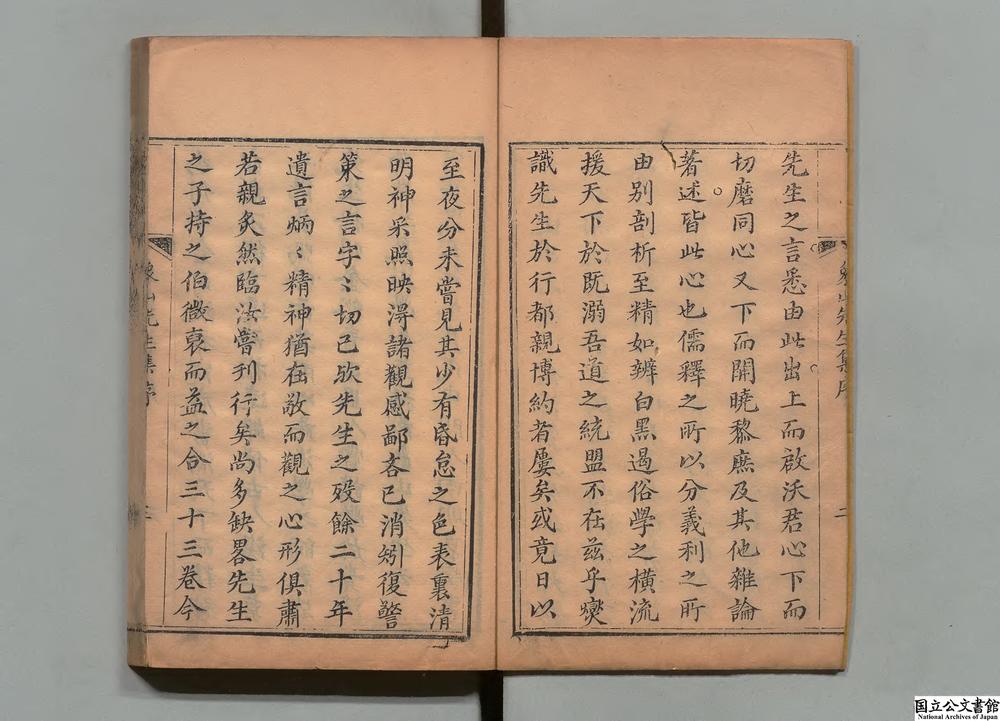 先生之言悉由此出上而啟沃君心下而
切磨同心又下而開曉黎庶及其他雜論
著述皆此心也儒釋之所以分義利之所
由別剖析至精如辨白黑遏俗學之橫流
援天下於既溺吾道之統盟不在茲乎燮
識先生於行都親博約者屢矣或竟日以
至夜分未嘗見其少有昏怠之色表裏清
明神采照映淂諸觀感鄙吝已消矧復警
策之言字〻切己欤先生之歿餘二十年
遺言炳〻精神猶在敬而觀之心形俱肅
若親炙然臨汝嘗刊行矣尚多缺畧先生
之子持之伯微裒而益之合三十三卷今
象山先生集序
二
象山先生集序
三
国立公文書館
National Archives of Japan